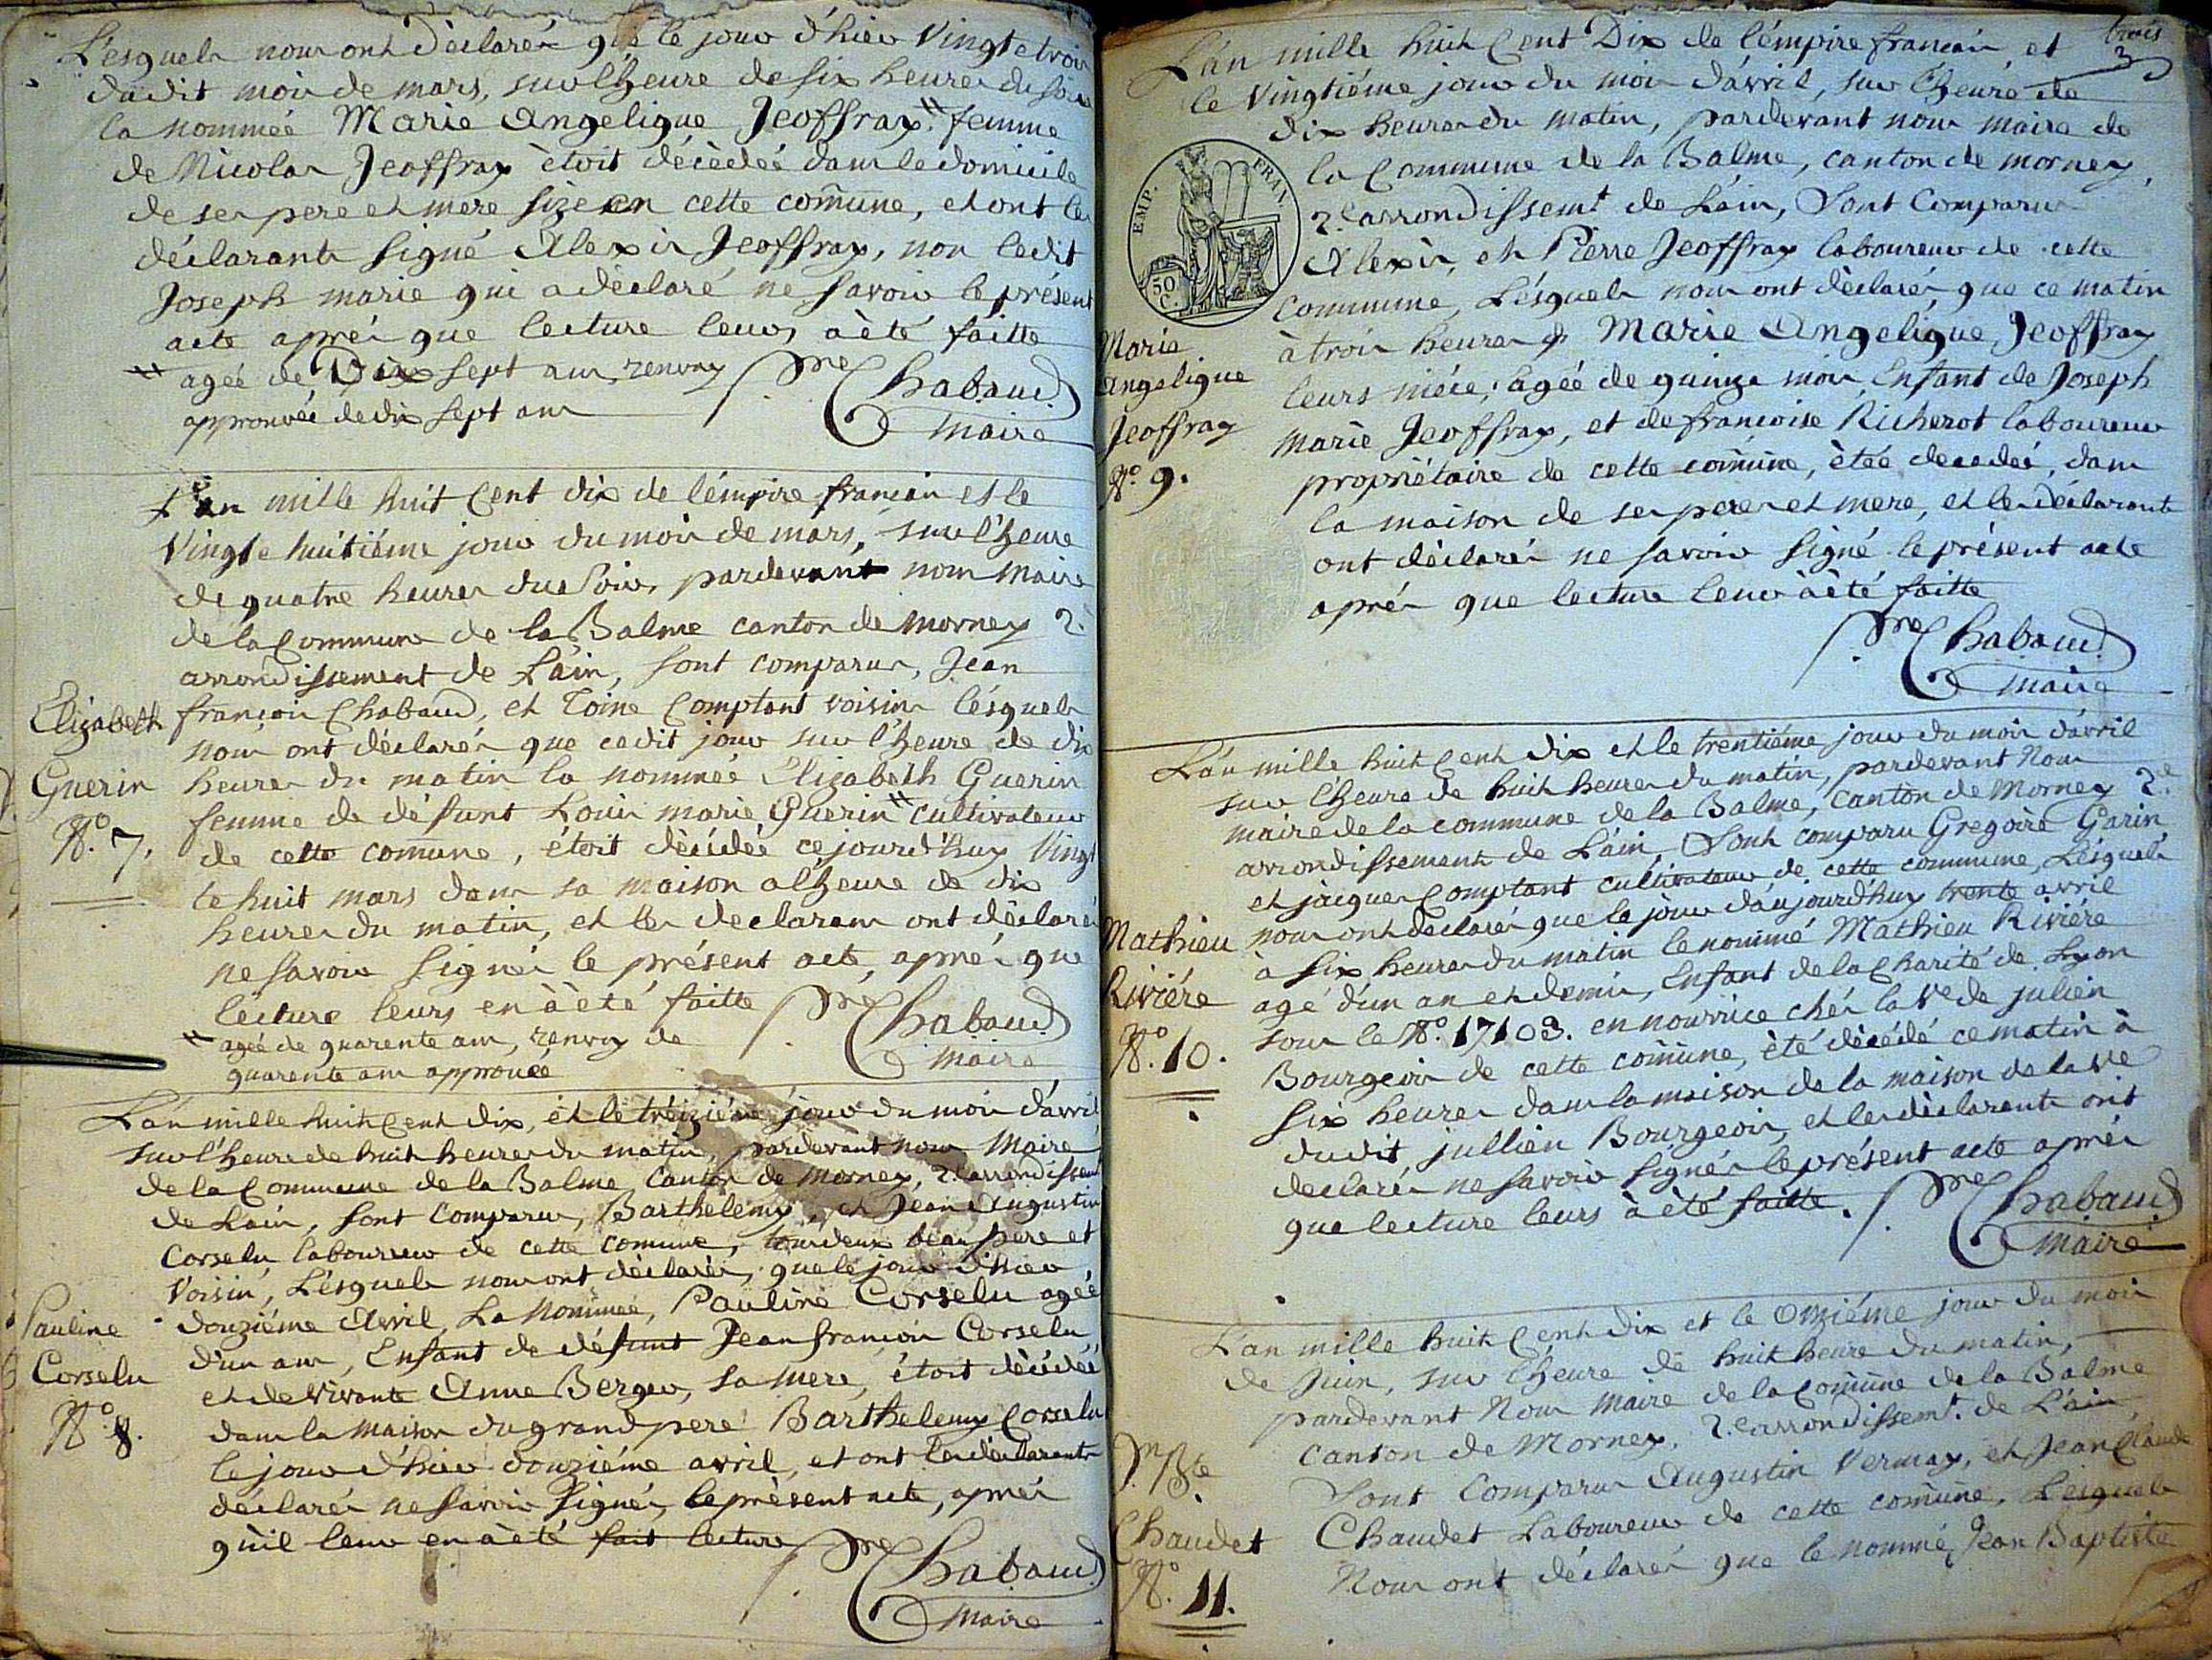 Lésquels nous ont déclarés que le jour d'hier Vingt etrois
dudit mois de mars, sur l'heure de six heures du soir
la nommée Marie Angelique Jeoffray,# femme
de Nicolas Jeoffray ètoit décèdeé dans le domicile
de ses pere et mere size en cette comune, et ont les
déclarants signé Alexis Jeoffray, non ledit
Joseph marie qui a dèclaré ne savoir le présent
acte aprés que lecture leurs à èté faitte
# ageé de Dix sept ans, renvoy
approuvée de dix sept ans
Pre Chabaud
maire
L'an mille huit Cent dix de l'émpire francais et le
Vingt e huitiéme jour du mois de mars, sur l'heure
de quatre heures du Soir, pardevant nous Maire
de la Commune de la Balme canton de Mornay 2.e
arrondissement de L'ain, sont comparus, Jean
francois Chabaud, et Toine Comptant voisins lésquels
nous ont déclarés que cedit jour sur l'heure de dix
heures du matin la nommée Elizabeth Guerin
femme de défunt Louis marie Guerin # cultivateur
de cette comune, étoit dècédée ce jourd'huy Vingt
te huit mars dans sa maison a l'heure de dix
heures du matin, et les declarans ont dèclarés
ne savoir signér le présent acte, aprés que
lécture leurs en à èté faitte
# ageé de quarente ans, renvoy de
quarente ans approuvé
Pre Chabaud
maire
Elizabeth
Guerin
N.o 7.
L'an mille huit Cent dix, et le tréziéme jour du mois d'avril
sur l'heure de huit heures du matin, pardevant nous Maire
de la Commune de la Balme Canton de Mornay, 2.e arrondissemt
de L'ain, sont Comparus, Barthelemy, et Jean Augustin
Corselu laboureur de cette comune, tous deux beau pere et
Voisin, Lésquels nous ont dèclarés, que le jour d'hier
douziéme Avril, La nommeé, Pauline Corselu ageé
d'un ans, Enfant de défunt Jean francois Corselu
et de vivante Anne Berger, sa mere, étoit dècédée
dans la maison du grand pere Barthelemy Corselu
le jour d'hier douziéme avril, et ont les déclarants
déclarés ne savoir signér, le présent acte, aprés
qu'il leur en à èté fait lecture
Pre Chabaud
Maire
Pauline
Corselu
N.o 8.
trois
3
L'an mille huit Cent Dix de l'émpire francais et
le Vingtiéme jour du mois d'avril, sur l'heure de
dix heures du matin, pardevant nous maire de
la Commune de la Balme, canton de mornay,
2.e arrondissemt de L'ain, Sont Comparus
Alexis, et Pierre Jeoffray laboureur de cette
Commune, Lésquels nous ont dèclarés, que ce matin
à trois heures Marie Angelique Jeoffray
leurs niéce, ageé de quinze mois, Enfant de Joseph
Marie Jeoffray, et de francoise Richerot laboureur
propriétaire de cette comune, étée decedeé, dans
la maison de ses peres et mere, et les déclarants
ont dèclarés ne savoir signé le présent acte
aprés que lecture leur à èté faitte
Pre Chabaud
maire
EMP. FRAN.
50 C.
Marie
Angelique
Jeoffray
N.o 9.
L'an mille huit Cent dix et le trentiéme jour du mois d'avril
sur l'heure de huit heures du matin, pardevant Nous
maire de la commune de la Balme, Canton de Mornay 2.e
arrondissement de L'ain, Sont comparu Gregoire Garin
et jacques Comptant cultivateur de cette commune, Lésquels
nous ont declarés que le jour d'aujourd'huy trente avril
à six heures du matin le nommé Mathieu Riviére
agé d'un an et demis, Enfant de la Charité de Lyon
sous le N.o 17103. en nourrice chés la Ve de julien
Bourgeois de cette comune, èté dècédé ce matin à
six heures dans la maison de la maison de la Ve
dudit jullien Bourgeois, et les dèclarents ont
declarés ne savoir signér le présent acte aprés
que lecture leurs à èté faitte.
Pre Chabaud
Maire
Mathieu
Riviére
N.o 10.
L'an mille huit Cent dix et le Onziéme jour du mois
de Juin, sur l'heure de huit heure du matin,
pardevant Nous Maire de la Comune de la Balme
canton de Mornay, 2.e arrondissemt. de L'ain
Sont Comparus Augustin Vernay, et Jean Claude
Chaudet Laboureur de cette comune, Lesquels
Nous ont déclarés que le nommé Jean Baptiste
Jn Bte
Chaudet
N.o 11.